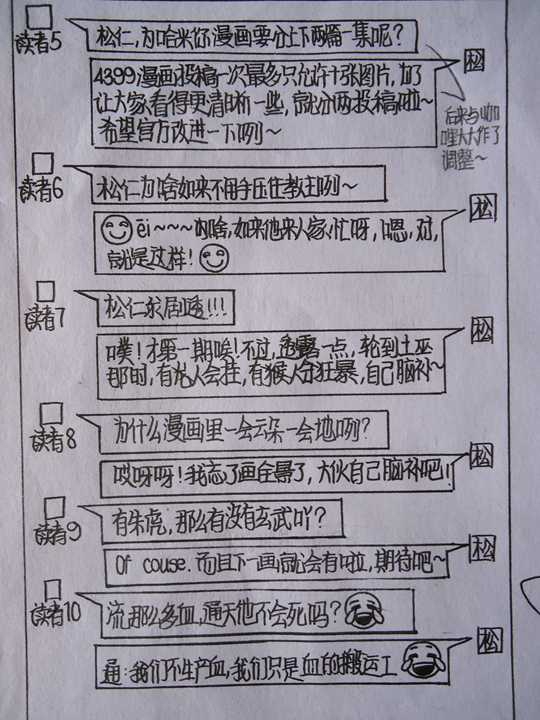 读者5
松仁,为啥米你漫画要分上下两篇一集呢?
松
4399漫画投稿一次最多只允许十张图片,为了
让大家看得更清晰一些,就分两投稿啦~
希望官方改进一下咧~
后来与咖
哩大大作了
调整~
读者6
松仁为啥如来不用手压住教主咧~
松
ēi~~~内啥,如来他来人家忙呀,嗯,对,
就是这样!
读者7
松仁求剧透!!!
松
噗!才第一期唉!不过,透露一点,轮到土巫
那时,有龙人会挂,有猴人会狂暴,自己脑补~
读者8
为什么漫画里一会云朵一会地咧?
松
哎呀呀!我忘了画全景了,大伙自己脑补吧!!
读者9
有朱虎,那么有没有玄武吖?
松
Of couse.而且下一画就会有啦,期待吧~
读者10
流那么多血,通天他不会死吗?
松
通:我们不生产血,我们只是血的搬运工